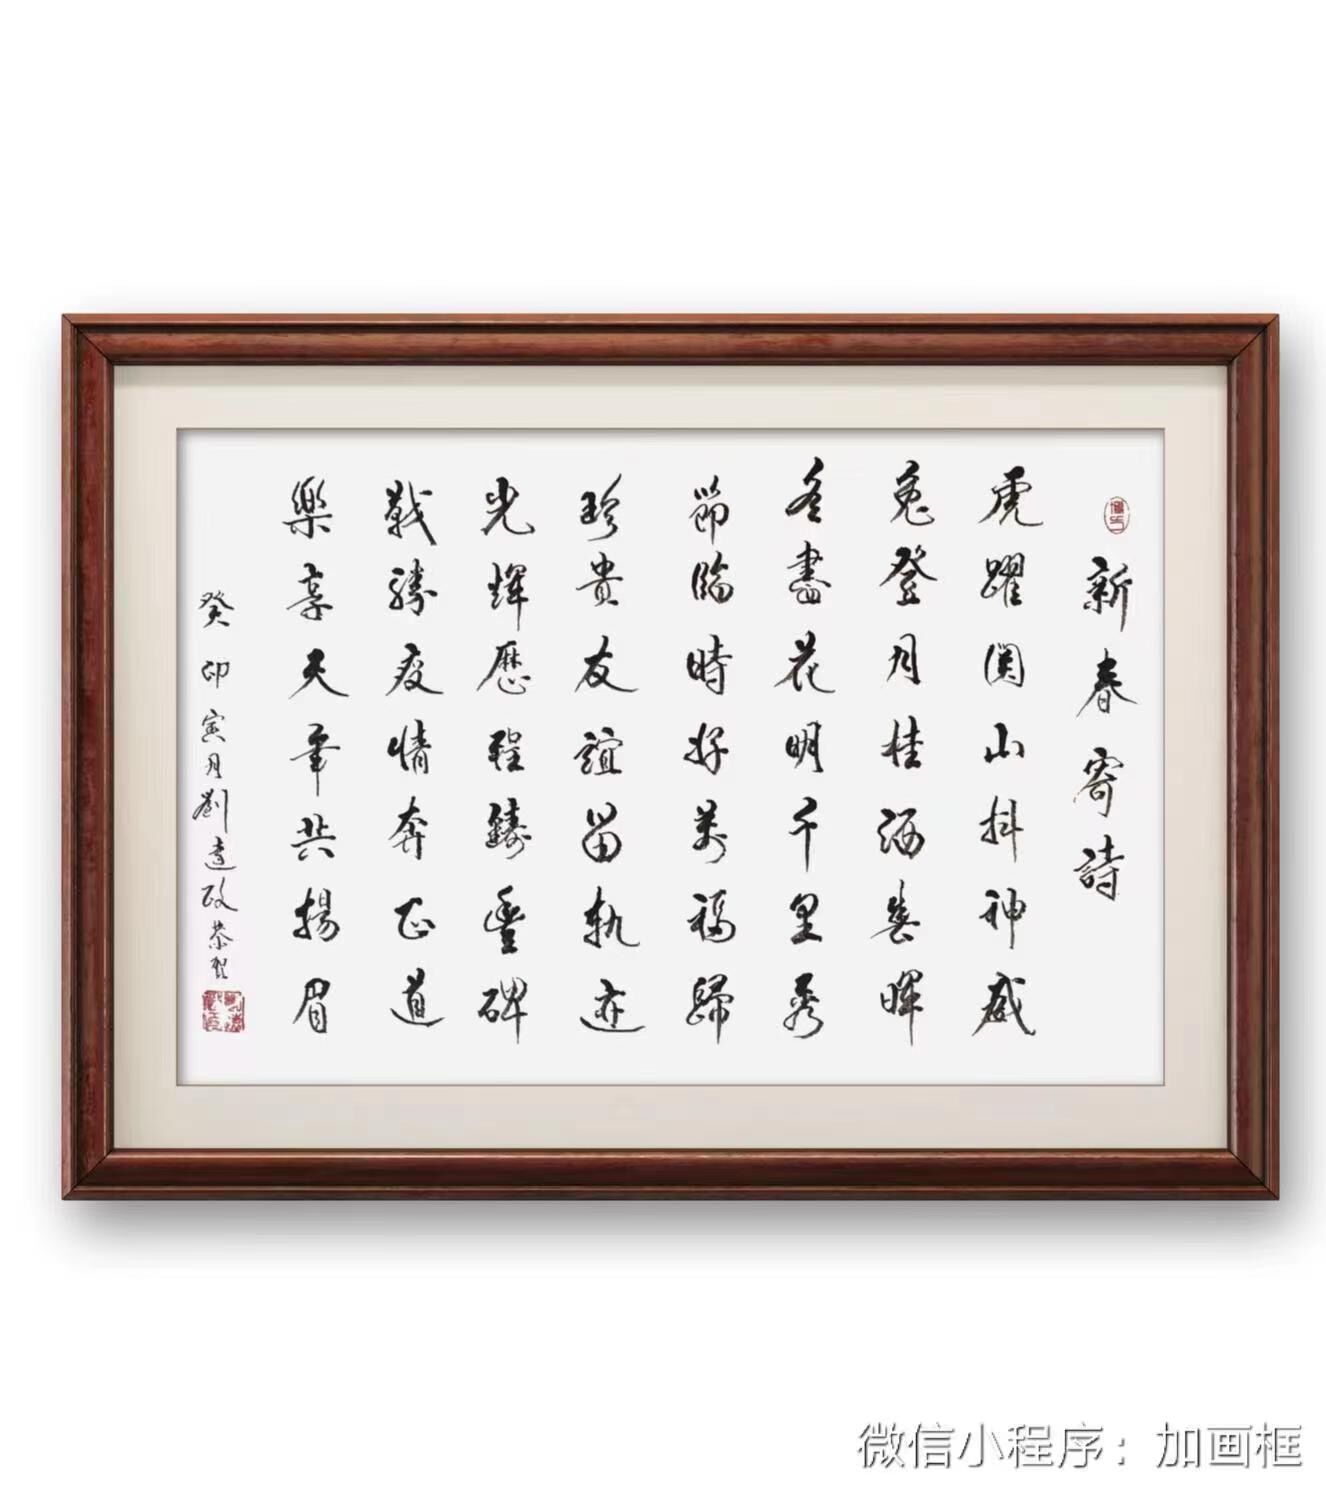 新春寄詩
虎躍関山抖神威
兔登月桂洒春暉
冬盡花明千里秀
節臨時好萬福歸
珍貴友誼留軌迹
光輝歷程鑄豐碑
戰勝疫情奔正道
樂享天年共揚眉
癸卯寅月劉達政恭賀
微信小程序：加画框